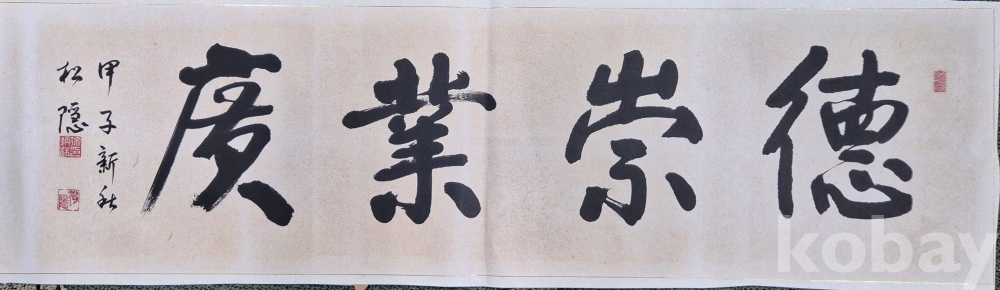 德崇業廣
甲子新秋
松隱
kobay